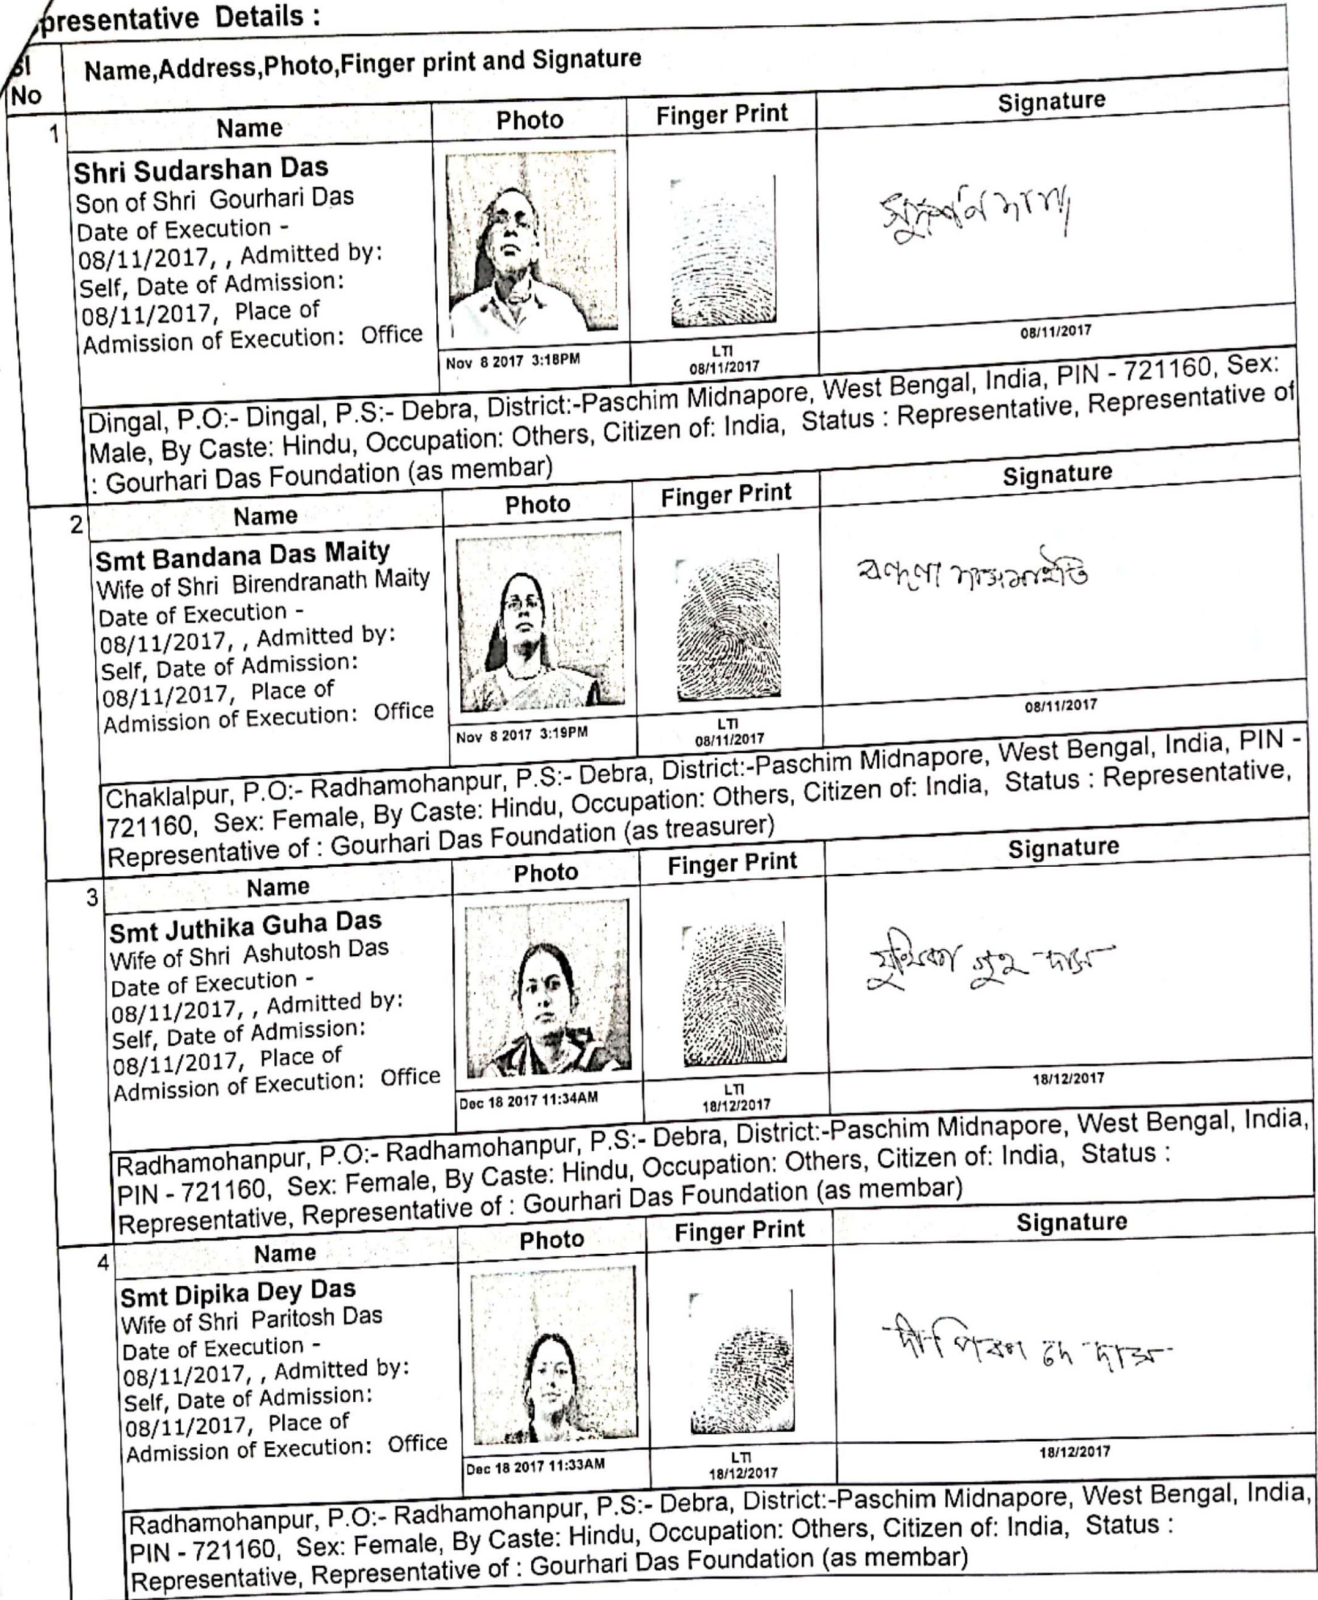 presentative Details :
Sl No
Name,Address,Photo,Finger print and Signature
1
Name
Photo
Finger Print
Signature
Shri Sudarshan Das
Son of Shri Gourhari Das
Date of Execution -
08/11/2017, , Admitted by:
Self, Date of Admission:
08/11/2017, Place of
Admission of Execution: Office
Nov 8 2017 3:18PM
LTI
08/11/2017
সুদর্শন দাস
08/11/2017
Dingal, P.O:- Dingal, P.S:- Debra, District:-Paschim Midnapore, West Bengal, India, PIN - 721160, Sex:
Male, By Caste: Hindu, Occupation: Others, Citizen of: India, Status : Representative, Representative of
: Gourhari Das Foundation (as membar)
2
Name
Photo
Finger Print
Signature
Smt Bandana Das Maity
Wife of Shri Birendranath Maity
Date of Execution -
08/11/2017, , Admitted by:
Self, Date of Admission:
08/11/2017, Place of
Admission of Execution: Office
Nov 8 2017 3:19PM
LTI
08/11/2017
দাসমাইতি
08/11/2017
Chaklalpur, P.O:- Radhamohanpur, P.S:- Debra, District:-Paschim Midnapore, West Bengal, India, PIN -
721160, Sex: Female, By Caste: Hindu, Occupation: Others, Citizen of: India, Status : Representative,
Representative of : Gourhari Das Foundation (as treasurer)
3
Name
Photo
Finger Print
Signature
Smt Juthika Guha Das
Wife of Shri Ashutosh Das
Date of Execution -
08/11/2017, , Admitted by:
Self, Date of Admission:
08/11/2017, Place of
Admission of Execution: Office
Dec 18 2017 11:34AM
LTI
18/12/2017
যুথিকা গুহ দাস
18/12/2017
Radhamohanpur, P.O:- Radhamohanpur, P.S:- Debra, District:-Paschim Midnapore, West Bengal, India,
PIN - 721160, Sex: Female, By Caste: Hindu, Occupation: Others, Citizen of: India, Status :
Representative, Representative of : Gourhari Das Foundation (as membar)
4
Name
Photo
Finger Print
Signature
Smt Dipika Dey Das
Wife of Shri Paritosh Das
Date of Execution -
08/11/2017, , Admitted by:
Self, Date of Admission:
08/11/2017, Place of
Admission of Execution: Office
Dec 18 2017 11:33AM
LTI
18/12/2017
দীপিকা দে দাস
18/12/2017
Radhamohanpur, P.O:- Radhamohanpur, P.S:- Debra, District:-Paschim Midnapore, West Bengal, India,
PIN - 721160, Sex: Female, By Caste: Hindu, Occupation: Others, Citizen of: India, Status :
Representative, Representative of : Gourhari Das Foundation (as membar)